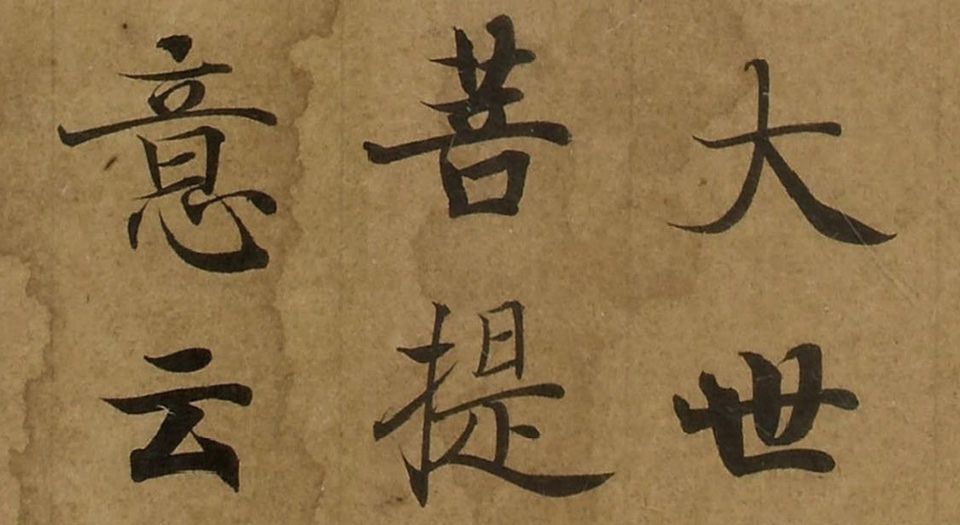 大世
菩提
意云